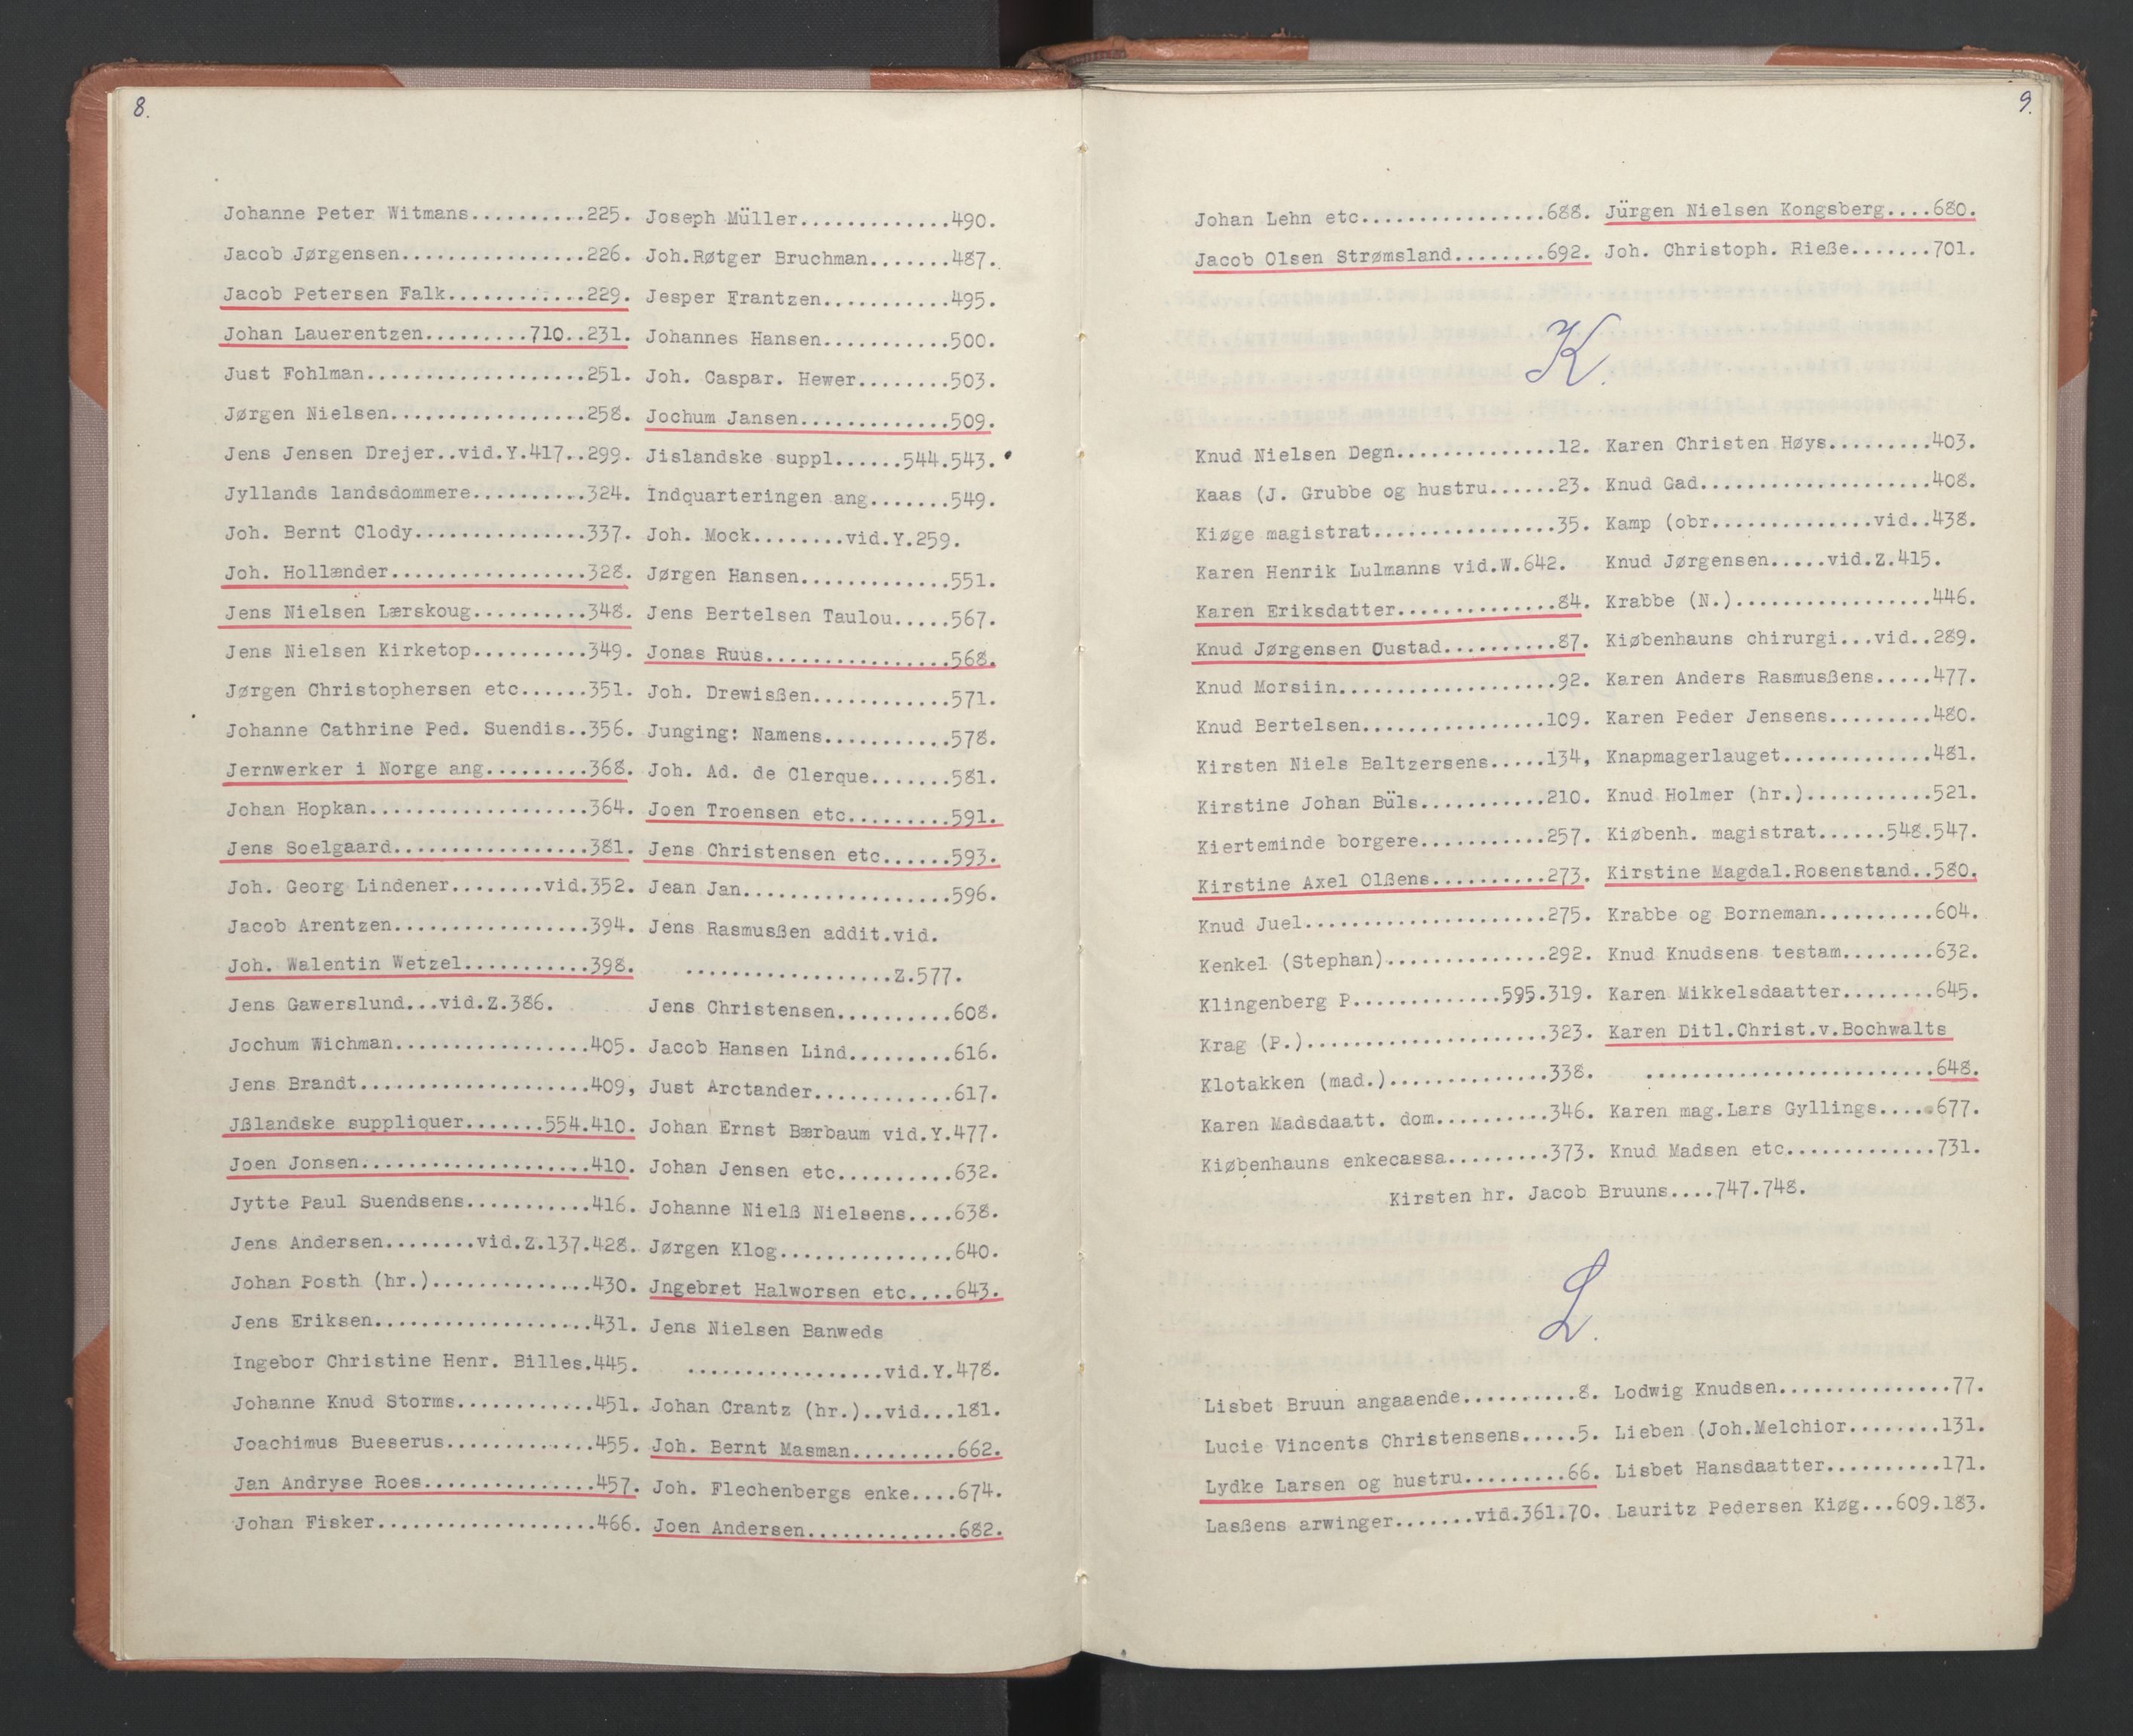 8.
Johanne Peter Witmans..........225.
Jacob Jørgensen................226.
Jacob Petersen Falk............229.
Johan Lauerentzen.........710..231.
Just Fohlman...................251.
Jørgen Nielsen.................258.
Jens Jensen Drejer..vid.Y.417..299.
Jyllands landsdommere..........324.
Joh. Bernt Clody...............337.
Joh. Hollænder.................328.
Jens Nielsen Lærskoug..........348.
Jens Nielsen Kirketop..........349.
Jørgen Christophersen etc......351.
Johanne Cathrine Ped. Suendis..356.
Jernwerker i Norge ang.........368.
Johan Hopkan...................364.
Jens Soelgaard.................381.
Joh. Georg Lindener........vid.352.
Jacob Arentzen.................394.
Joh. Walentin Wetzel...........398.
Jens Gawerslund...vid.Z.386.
Jochum Wichman.................405.
Jens Brandt....................409,
Jßlandske suppliquer.......554.410.
Joen Jonsen....................410.
Jytte Paul Suendsens...........416.
Jens Andersen........vid.Z.137.428.
Johan Posth (hr.)..............430.
Jens Eriksen...................431.
Ingebor Christine Henr. Billes.445.
Johanne Knud Storms............451.
Joachimus Bueserus.............455.
Jan Andryse Roes...............457.
Johan Fisker...................466.
Joseph Müller.............490.
Joh.Røtger Bruchman.......487.
Jesper Frantzen...........495.
Johannes Hansen...........500.
Joh. Caspar. Hewer........503.
Jochum Jansen.............509.
Jislandske suppl......544.543.
Indquarteringen ang.......549.
Joh. Mock........vid.Y.259.
Jørgen Hansen.............551.
Jens Bertelsen Taulou.....567.
Jonas Ruus................568.
Joh. Drewisßen............571.
Junging: Namens...........578.
Joh. Ad. de Clerque.......581.
Joen Troensen etc.........591.
Jens Christensen etc......593.
Jean Jan..................596.
Jens Rasmusßen addit.vid.
..................Z.577.
Jens Christensen..........608.
Jacob Hansen Lind.........616.
Just Arctander............617.
Johan Ernst Bærbaum vid.Y.477.
Johan Jensen etc..........632.
Johanne Nielß Nielsens....638.
Jørgen Klog...............640.
Jngebret Halworsen etc....643.
Jens Nielsen Banweds
.................vid.Y.478.
Johan Crantz (hr.)..vid...181.
Joh. Bernt Masman.........662.
Joh. Flechenbergs enke....674.
Joen Andersen.............682.
9.
Johan Lehn etc................688.
Jacob Olsen Strømsland........692.
Jürgen Nielsen Kongsberg....680.
Joh. Christoph. Rieße.......701.
K.
Knud Nielsen Degn..............12.
Kaas (J. Grubbe og hustru......23.
Kiøge magistrat................35.
Karen Henrik Lulmanns vid.W.642.
Karen Eriksdatter..............84.
Knud Jørgensen Oustad..........87.
Knud Morsiin...................92.
Knud Bertelsen................109.
Kirsten Niels Baltzersens.....134,
Kirstine Johan Büls...........210.
Kierteminde borgere...........257.
Kirstine Axel Olßens..........273.
Knud Juel.....................275.
Kenkel (Stephan)..............292.
Klingenberg P.............595.319.
Krag (P.).....................323.
Klotakken (mad.)..............338.
Karen Madsdaatt. dom..........346.
Kiøbenhauns enkecassa.........373.
Karen Christen Høys.........403.
Knud Gad....................408.
Kamp (obr..............vid..438.
Knud Jørgensen.....vid.Z.415.
Krabbe (N.).................446.
Kiøbenhauns chirurgi...vid..289.
Karen Anders Rasmusßens.....477.
Karen Peder Jensens.........480.
Knapmagerlauget.............481.
Knud Holmer (hr.)...........521.
Kiøbenh. magistrat......548.547.
Kirstine Magdal.Rosenstand..580.
Krabbe og Borneman..........604.
Knud Knudsens testam........632.
Karen Mikkelsdaatter........645.
Karen Ditl.Christ.v.Bochwalts
.........................648.
Karen mag.Lars Gyllings.....677.
Knud Madsen etc.............731.
Kirsten hr. Jacob Bruuns....747.748.
L.
Lisbet Bruun angaaende..........8.
Lucie Vincents Christensens.....5.
Lydke Larsen og hustru.........66.
Lasßens arwinger.......vid.361.70.
Lodwig Knudsen...............77.
Lieben (Joh.Melchior........131.
Lisbet Hansdaatter..........171.
Lauritz Pedersen Kiøg...609.183.